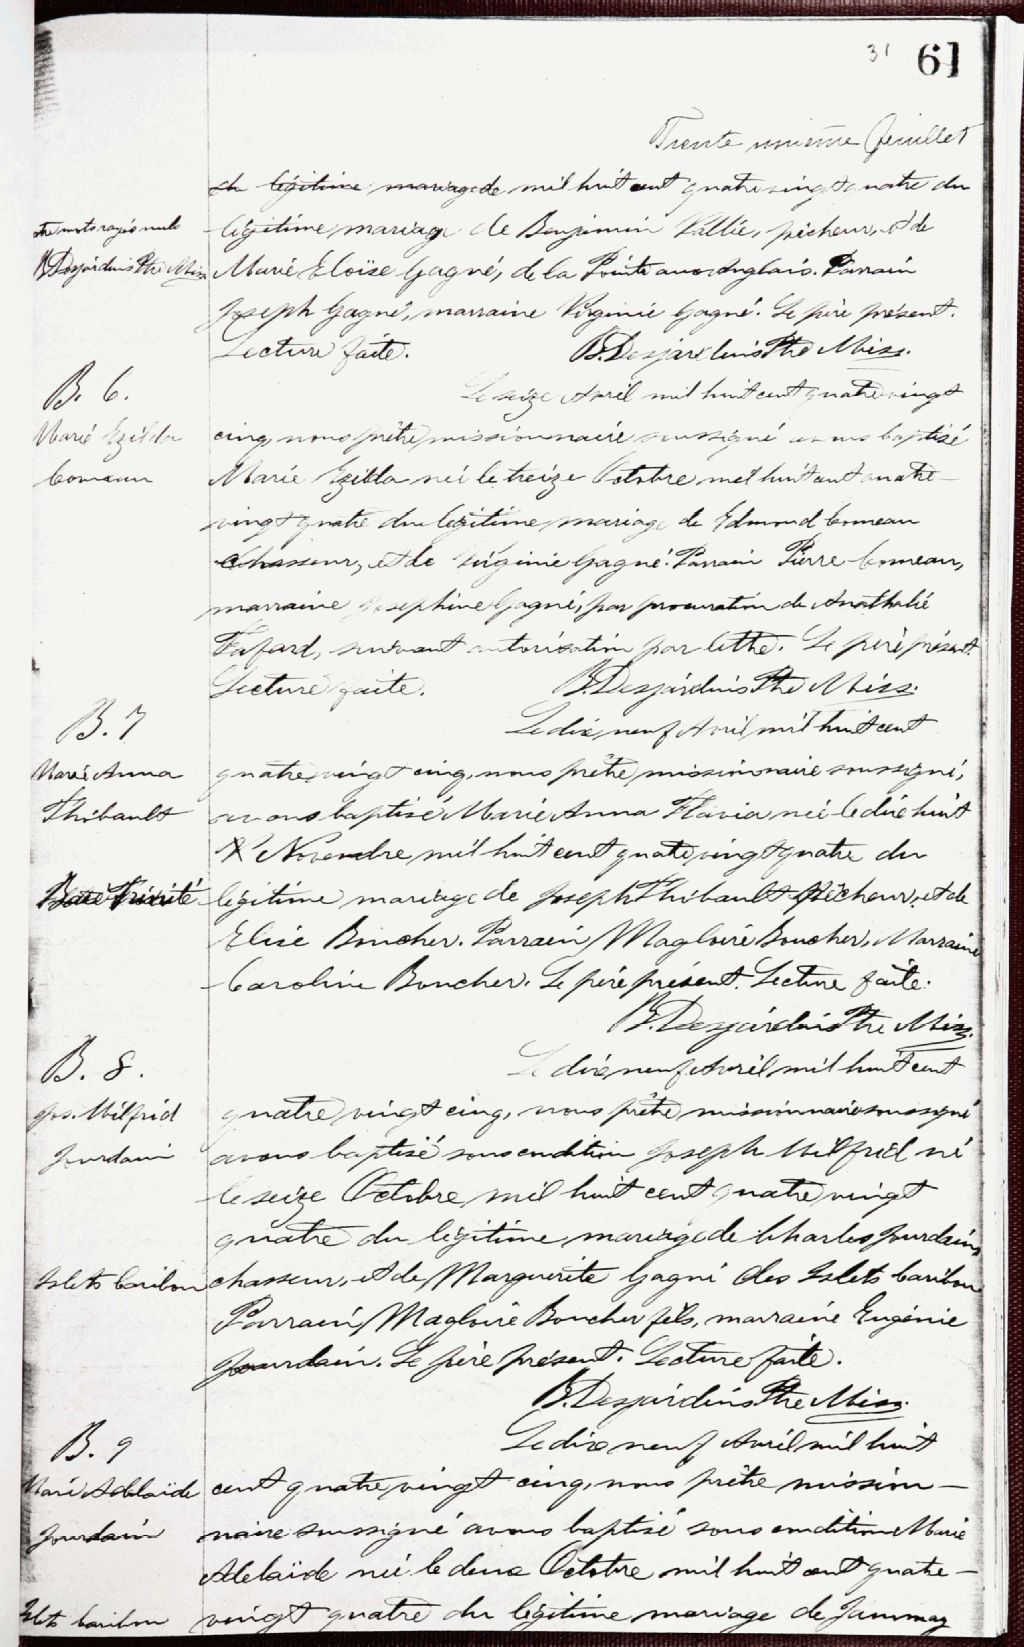 31 61
Trente unième feuillet
du légitime mariage de mil huit cent quatre vingt quatre du
mots rayés nuls
légitime mariage de Benjamin Vallée, pêcheur, et de
B. Desjardins Ptre Miss
Marie Eloïse Gagné, de la Pointe aux Anglais. Parrain
Joseph Gagné, marraine Virginie Gagné. Le père présent.
Lecture faite. B. Desjardins Ptre Miss.
B. 6.
Le seize Avril mil huit cent quatre vingt
Marie Ezilda
cinq, nous prêtre missionnaire soussigné avons baptisé
Comeau
Marie Ezilda née le treize Octobre mil huit cent quatre-
vingt quatre du légitime mariage de Edmond Comeau
chasseur, et de Virginie Gagné. Parrain Pierre Comeau,
marraine Josephine Gagné, par procuration de Anathalie
Fafard, suivant autorisation par lettre. Le père présent.
Lecture faite. B. Desjardins Ptre Miss.
B. 7
Le dix neuf Avril mil huit cent
Marie Anna
quatre vingt cinq, nous prêtre missionnaire soussigné,
Thibault
avons baptisé Marie Anna Flavia née le dix huit
Novembre mil huit cent quatre vingt quatre du
Baie Trinité
légitime mariage de Joseph Thibault pêcheur, et de
Elise Boucher. Parrain Magloire Boucher, Marraine
Caroline Boucher. Le père présent. Lecture faite.
B. Desjardins Ptre Miss.
B. 8.
Le dix neuf Avril mil huit cent
Jos. Wilfrid
quatre vingt cinq, nous prêtre missionnaire soussigné
Jourdain
avons baptisé sous condition Joseph Wilfrid né
le seize Octobre mil huit cent quatre vingt
quatre du légitime mariage de Charles Jourdain
Islets Caribou
chasseur, et de Marguerite Gagné des Islets Caribou
Parrain Magloire Boucher fils, marraine Eugénie
Jourdain. Le père présent. Lecture faite.
B. Desjardins Ptre Miss.
B. 9
Le dix neuf Avril mil huit
Marie Adelaïde
cent quatre vingt cinq, nous prêtre mission-
Jourdain
naire soussigné avons baptisé sous condition Marie
Adelaïde née le deux Octobre mil huit cent quatre-
Islets Caribou
vingt quatre du légitime mariage de